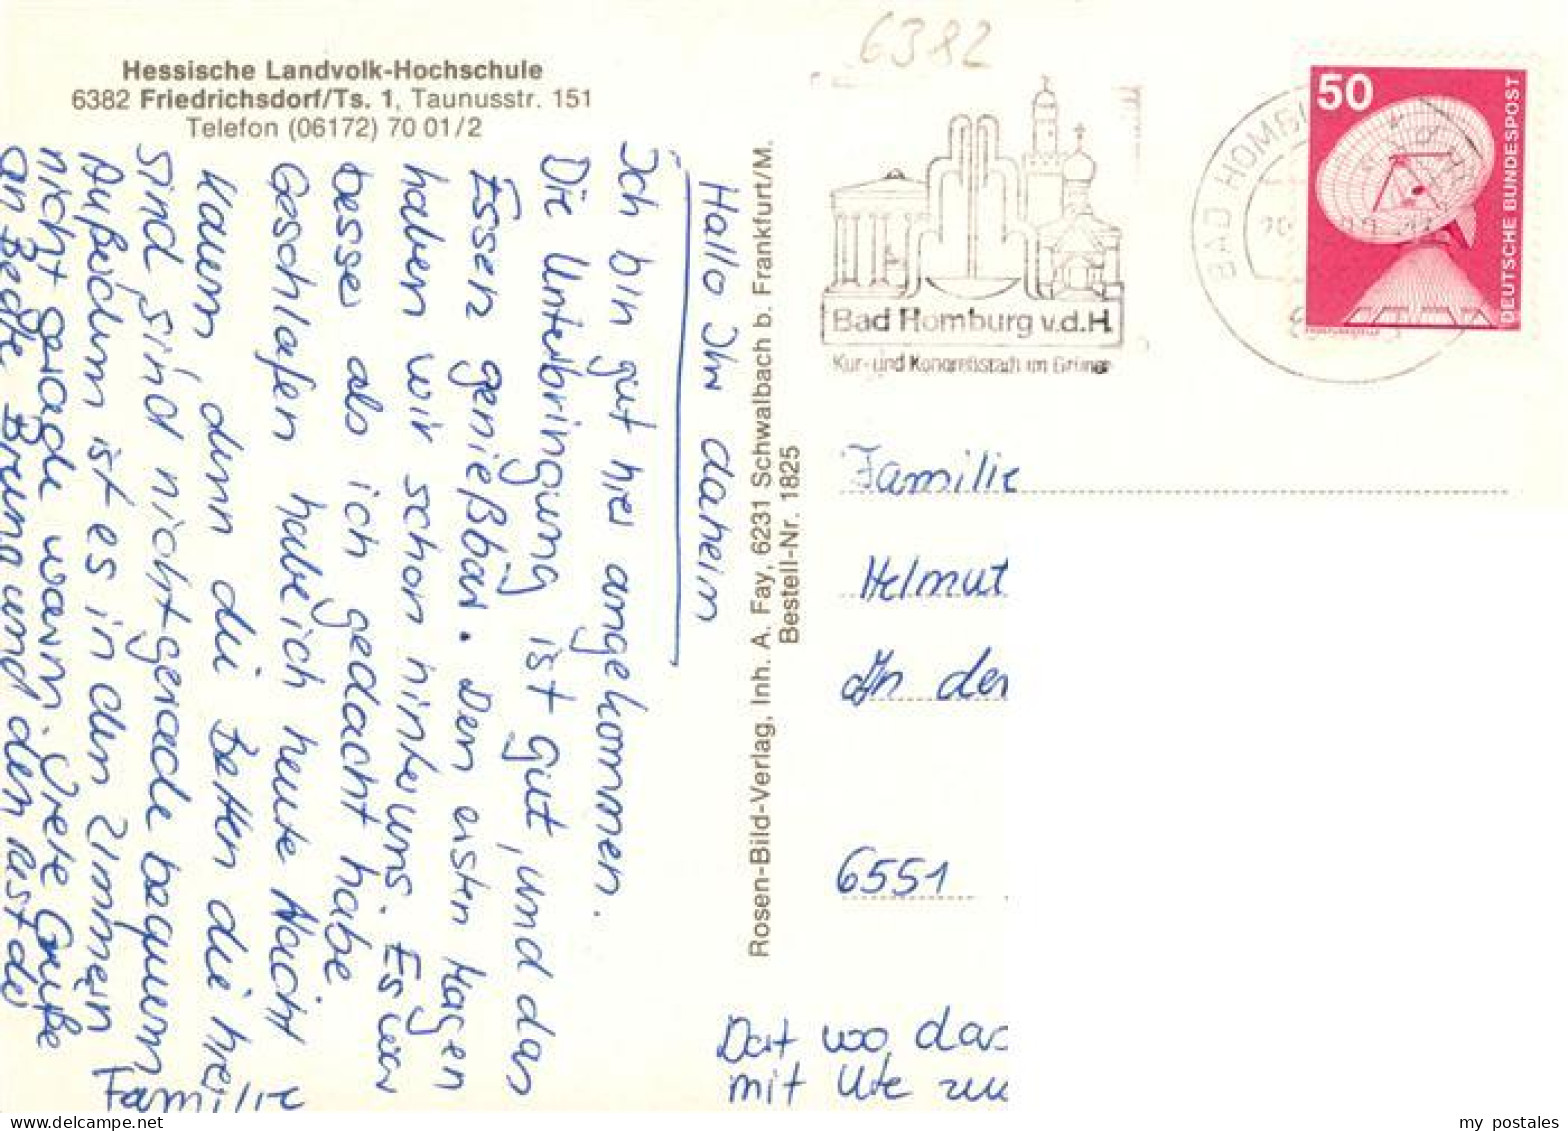 Hessische Landvolk-Hochschule
6382 Friedrichsdorf/Ts. 1, Taunusstr. 151
Telefon (06172) 70 01/2
Hallo Ihr daheim
Ich bin gut hier angekommen.
Die Unterbringung ist gut, und das
Essen genießbar. Den ersten Magen
haben wir schon hinter uns. Es war
besser als ich gedacht habe
Geschlafen habe ich heute Nacht
kaum, denn die Betten die hier
sind sind nicht gerade bequem
Außerdem ist es in den Zimmern
nicht gerade warm. Viele Grüße
an Bedte Bruno und den Rest der
Familie
Rosen-Bild-Verlag, Inh. A. Fay, 6231 Schwalbach b. Frankfurt/M.
Bestell-Nr. 1825
6382
Bad Homburg v.d.H
Kur- und Kongreßstadt im Grünen
BAD HOMBU
50
DEUTSCHE BUNDESPOST
Familie
Helmut
In der
6551
Dat wo das
mit Ute zu
my postales